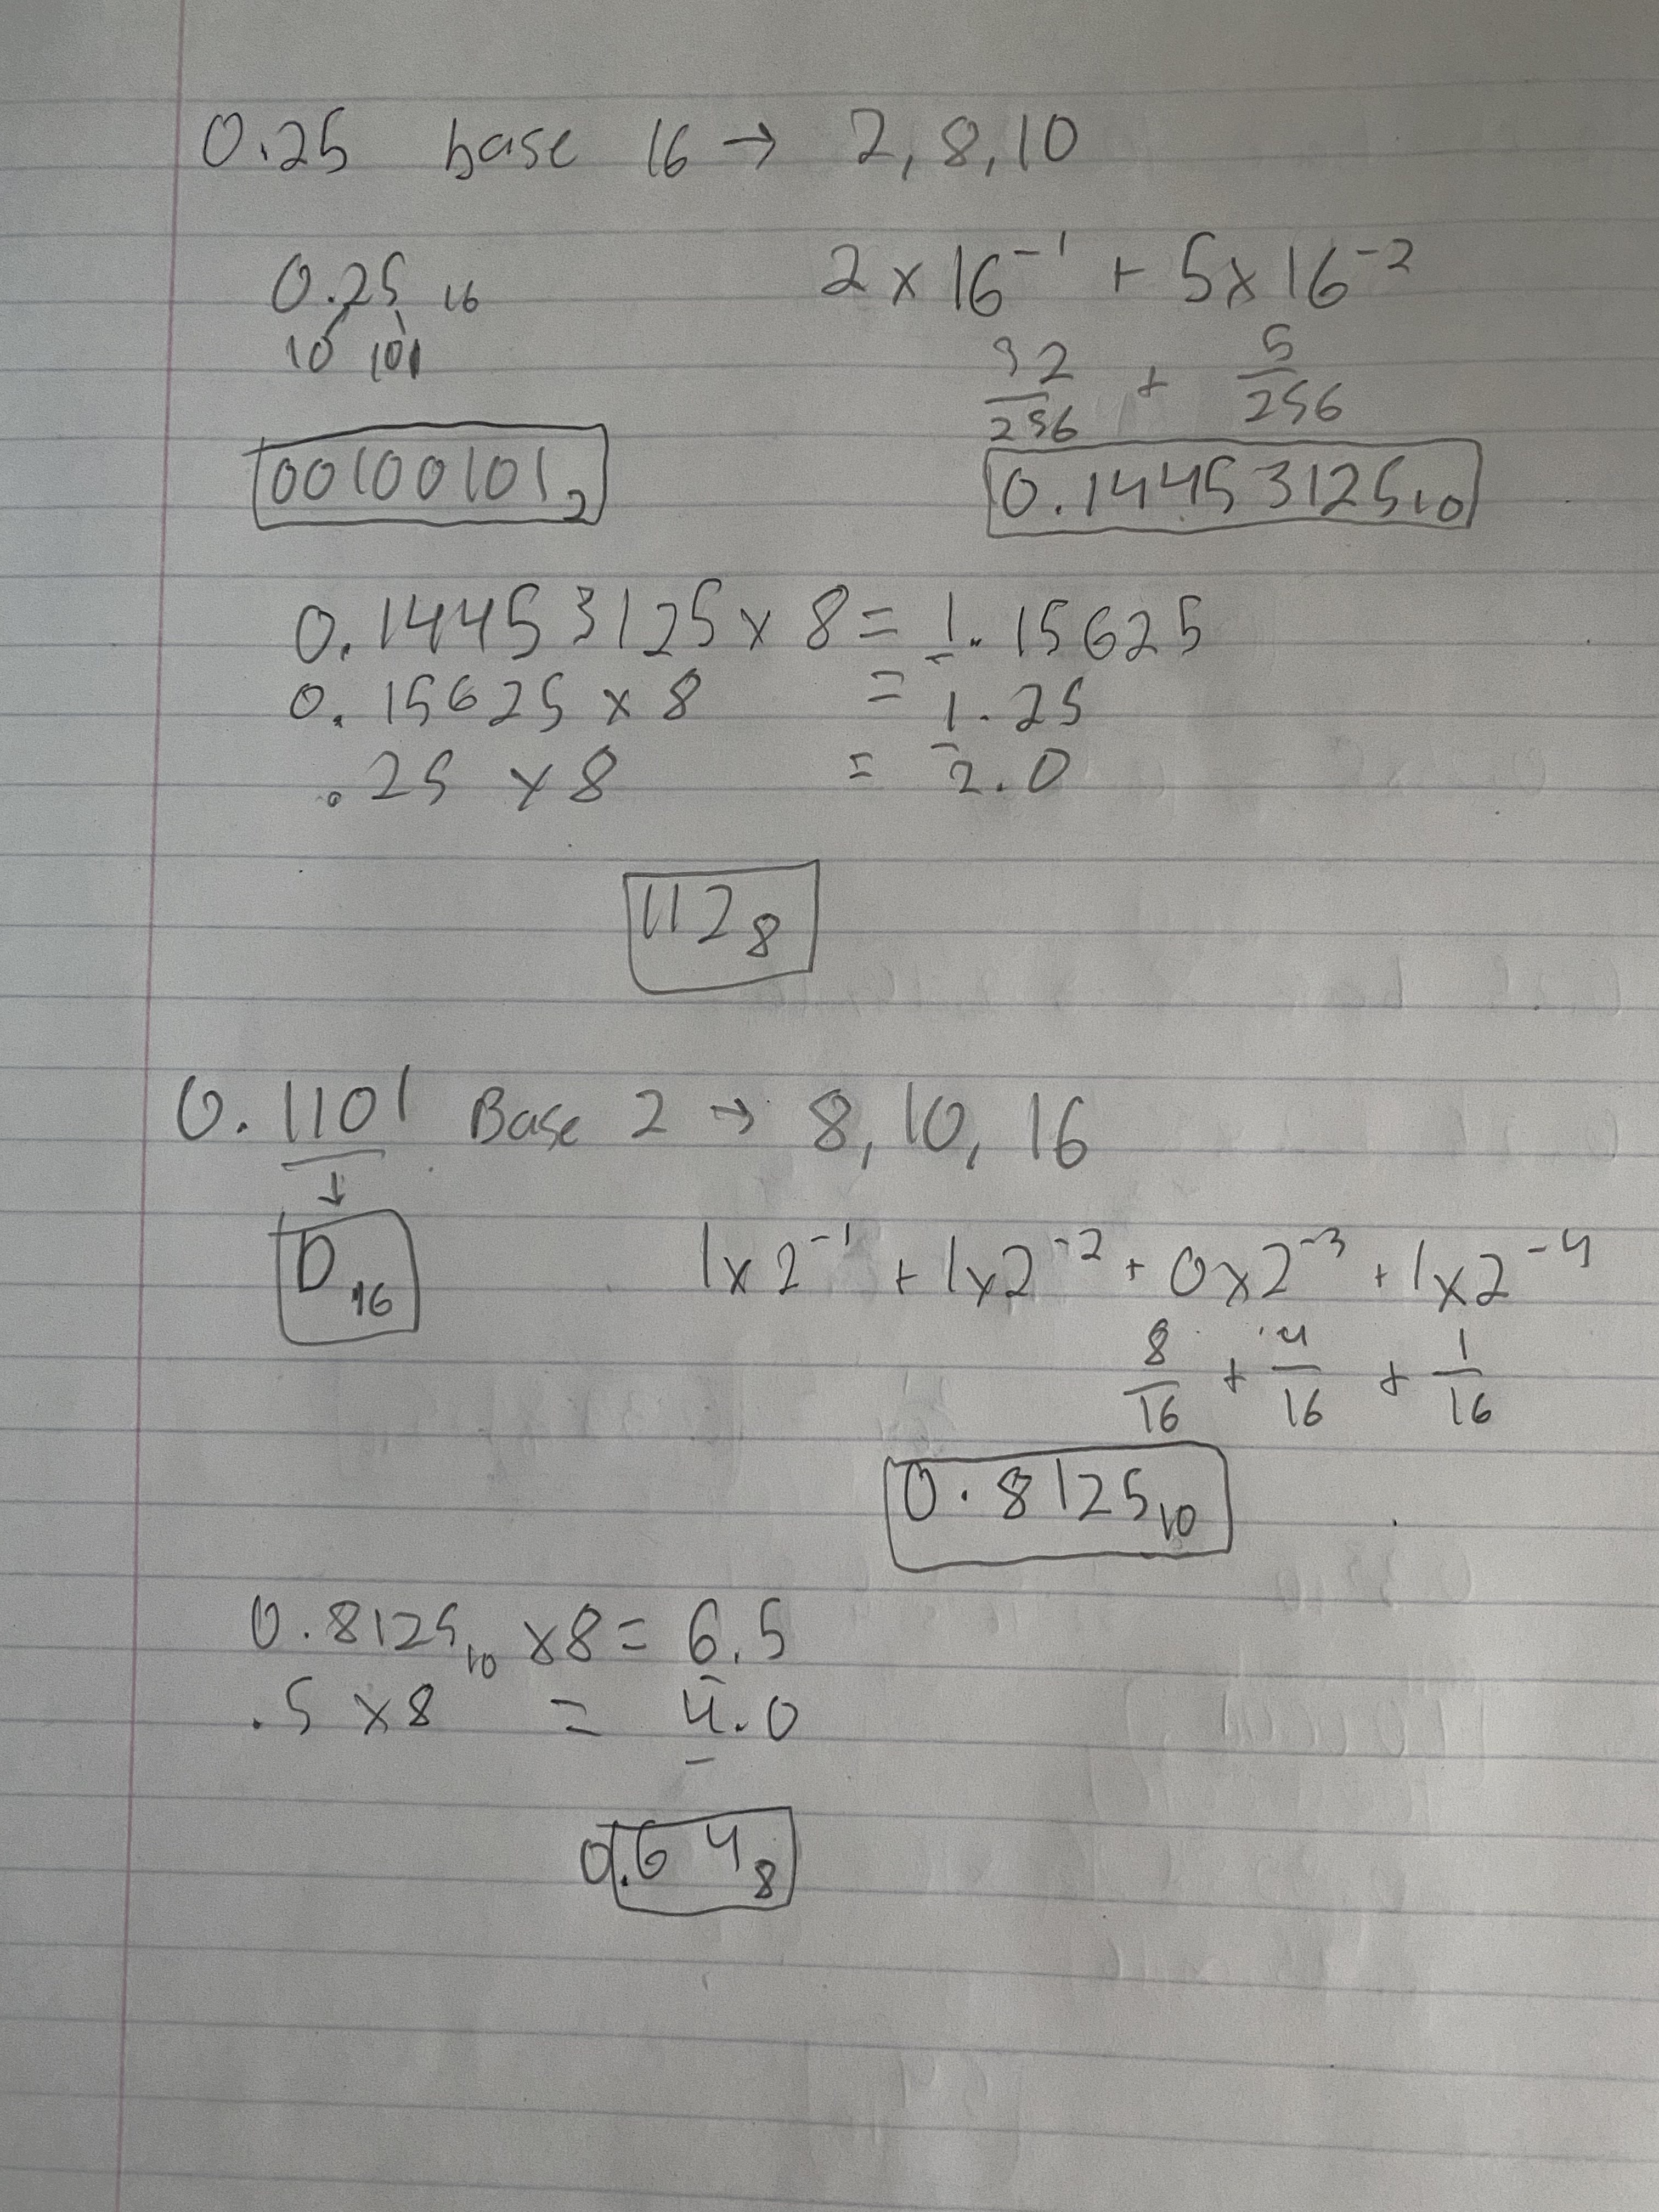 0.25 base 16 → 2, 8, 10
0.25 16
10 101
00100101₂
2 x 16⁻¹ + 5 x 16⁻²
32/256 + 5/256
0.14453125₁₀
0.14453125 x 8 = 1.15625
0.15625 x 8 = 1.25
.25 x 8 = 2.0
112₈
0.1101 Base 2 → 8, 10, 16
↓
D₁₆
1x2⁻¹ + 1x2⁻² + 0x2⁻³ + 1x2⁻⁴
8/16 + 4/16 + 1/16
0.8125₁₀
0.8125₁₀ x8 = 6.5
.5 x8 = 4.0
0.64₈